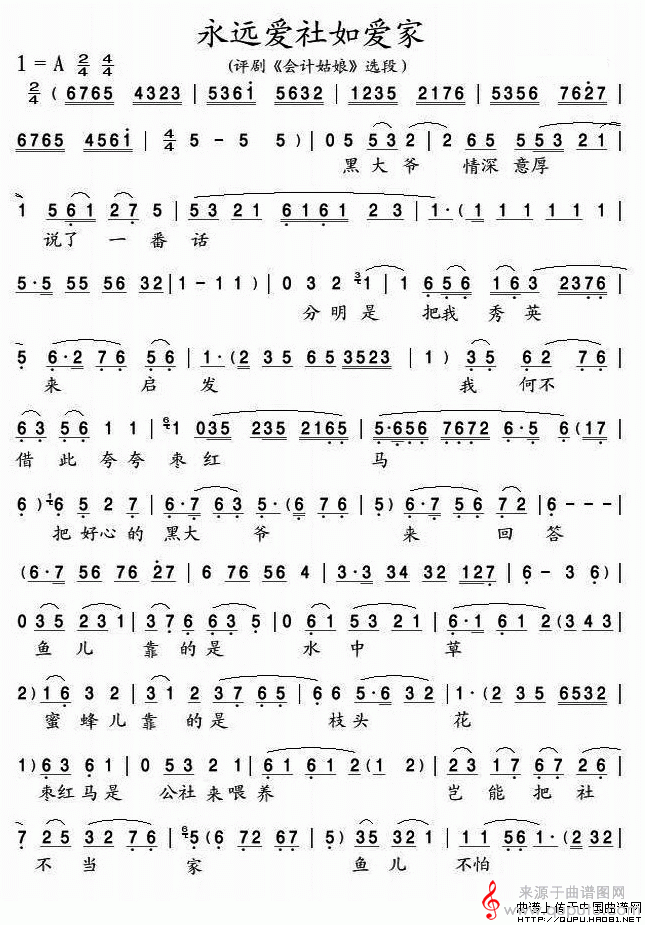 永远爱社如爱家
1=A 2/4 4/4 (评剧《会计姑娘》选段)
2/4 (6765 4323 | 5361 5632 | 1235 2176 | 5356 7627 |
6765 4561 | 4/4 5 - 5 5) | 05 53 2 | 2 65 553 21 |
黑大爷 情深意厚
1 561 27 5 | 53 21 6161 23 | 1·(1 11 1 1 |
说了一番话
5·5 55 56 32 | 1 - 11) | 0 3 2 1 | 1 656 163 2376 |
分明是 把我 秀英
5 6·2 76 56 | 1·(2 35 65 3523 | 1) 35 62 76 |
来 启 发 我 何不
63 56 1 1 | 1 035 235 2165 | 5·656 7672 6·5 6(17 |
借此夸夸枣红 马
6) 6 5 2 7 | 6·7 63 5·(6 | 5) 6·7 56 72 | 6 - - - |
把好心的黑大爷 来 回答
(6·7 56 76 27 | 6 76 5 6 4 | 3·3 34 32 127 | 6 - 3 6) |
035 231 | 376 6 635 | 0 61 53 21 | 6·1 61 2(343 |
鱼儿 靠的是 水中 草
2) 16 3 2 | 31 2 237 65 | 66 5·6 32 | 1·(2 35 6532 |
蜜蜂儿靠的是 枝头 花
1) 63 61 | 0 53 2 1 | 61 61 2(1 2) | 23 17 67 67 |
枣红马是 公社来喂养 岂能把社
7 25 32 76 | 5(6 72 67 | 5) 35 32 1 | 11 56 1·(232 |
不当 家 鱼儿 不怕
来源于曲谱图网
曲谱上传于中国曲谱网